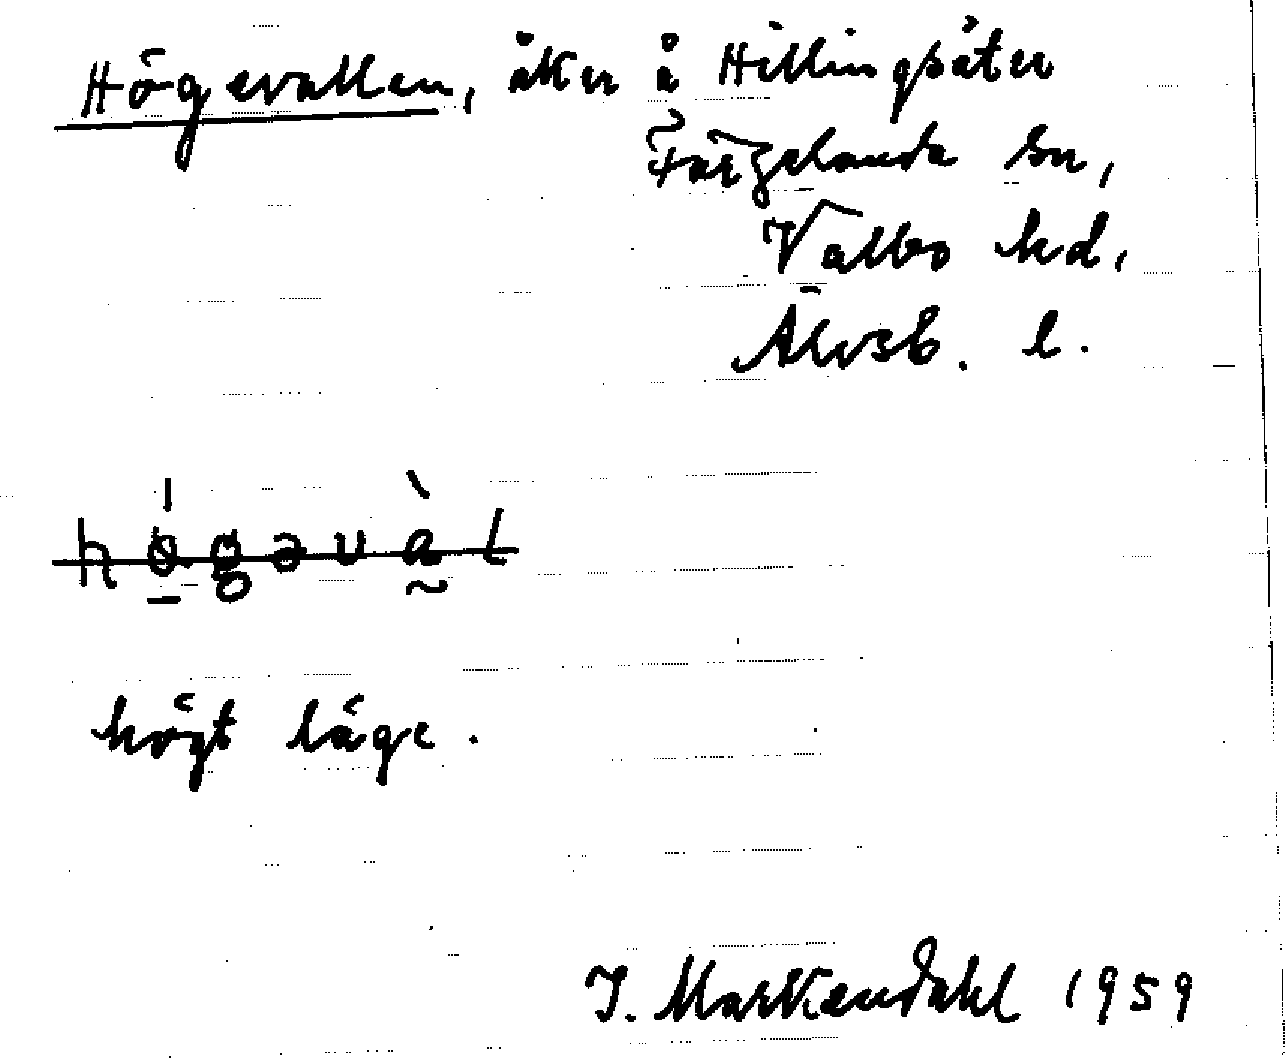 Högevallen, åker å Hillingsäter
Färgelanda sn,
Valbo hd,
Älvsb. l.
högəvàl
högt läge.
J. Markendahl 1959